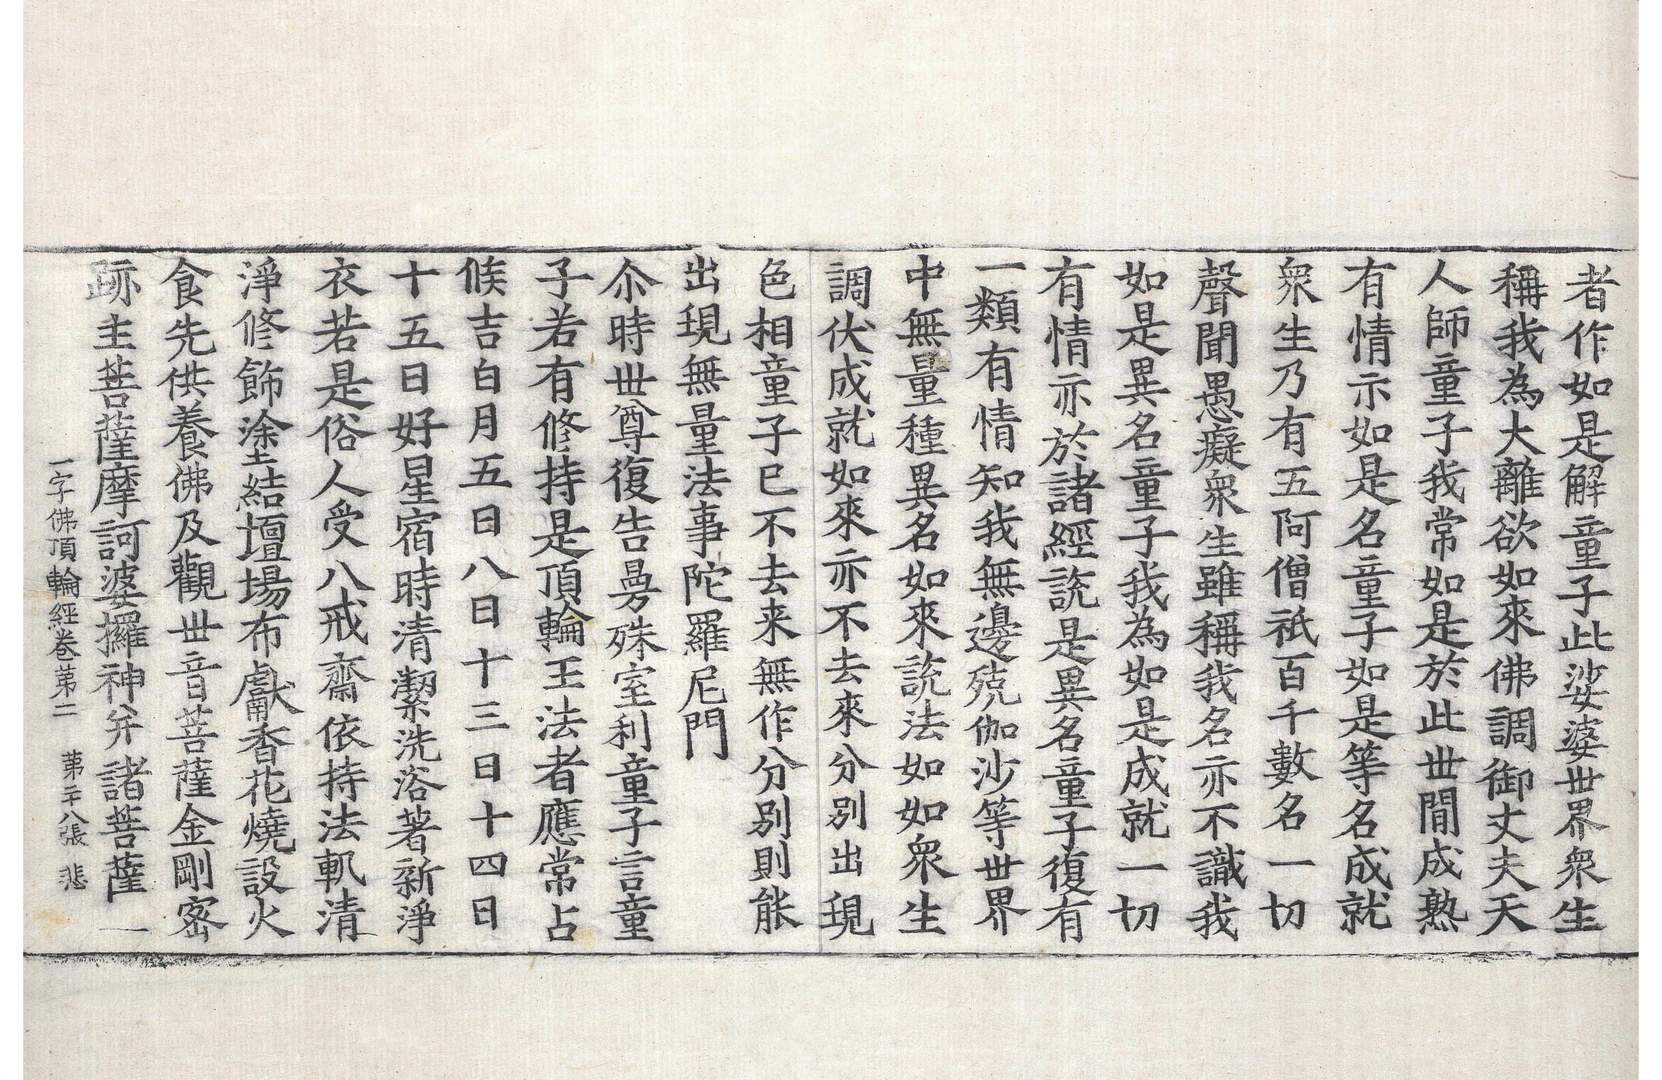 者作如是解童子此娑婆世界衆生
稱我為大離欲如來佛調御丈夫天
人師童子我常如是於此世間成熟
有情示如是名童子如是等名成就
衆生乃有五阿僧祇百千數名一切
聲聞愚癡衆生雖稱我名亦不識我
如是異名童子我為如是成就一切
有情亦於諸經說是異名童子復有
一類有情知我無邊殑伽沙等世界
中無量種異名如來說法如如衆生
調伏成就如來亦不去來分別出現
色相童子已不去来無作分別則能
出現無量法事陀羅尼門
尒時世尊復告曼殊室利童子言童
子若有修持是頂輪王法者應常占
候吉白月五日八日十三日十四日
十五日好星宿時清潔洗浴著新淨
衣若是俗人受八戒齋依持法軌清
淨修飾塗結壇場布獻香花燒設火
食先供養佛及觀世音菩薩金剛密
跡主菩薩摩訶婆攞神并諸菩薩一
一字佛頂輪經卷第二 第二十八張 悲